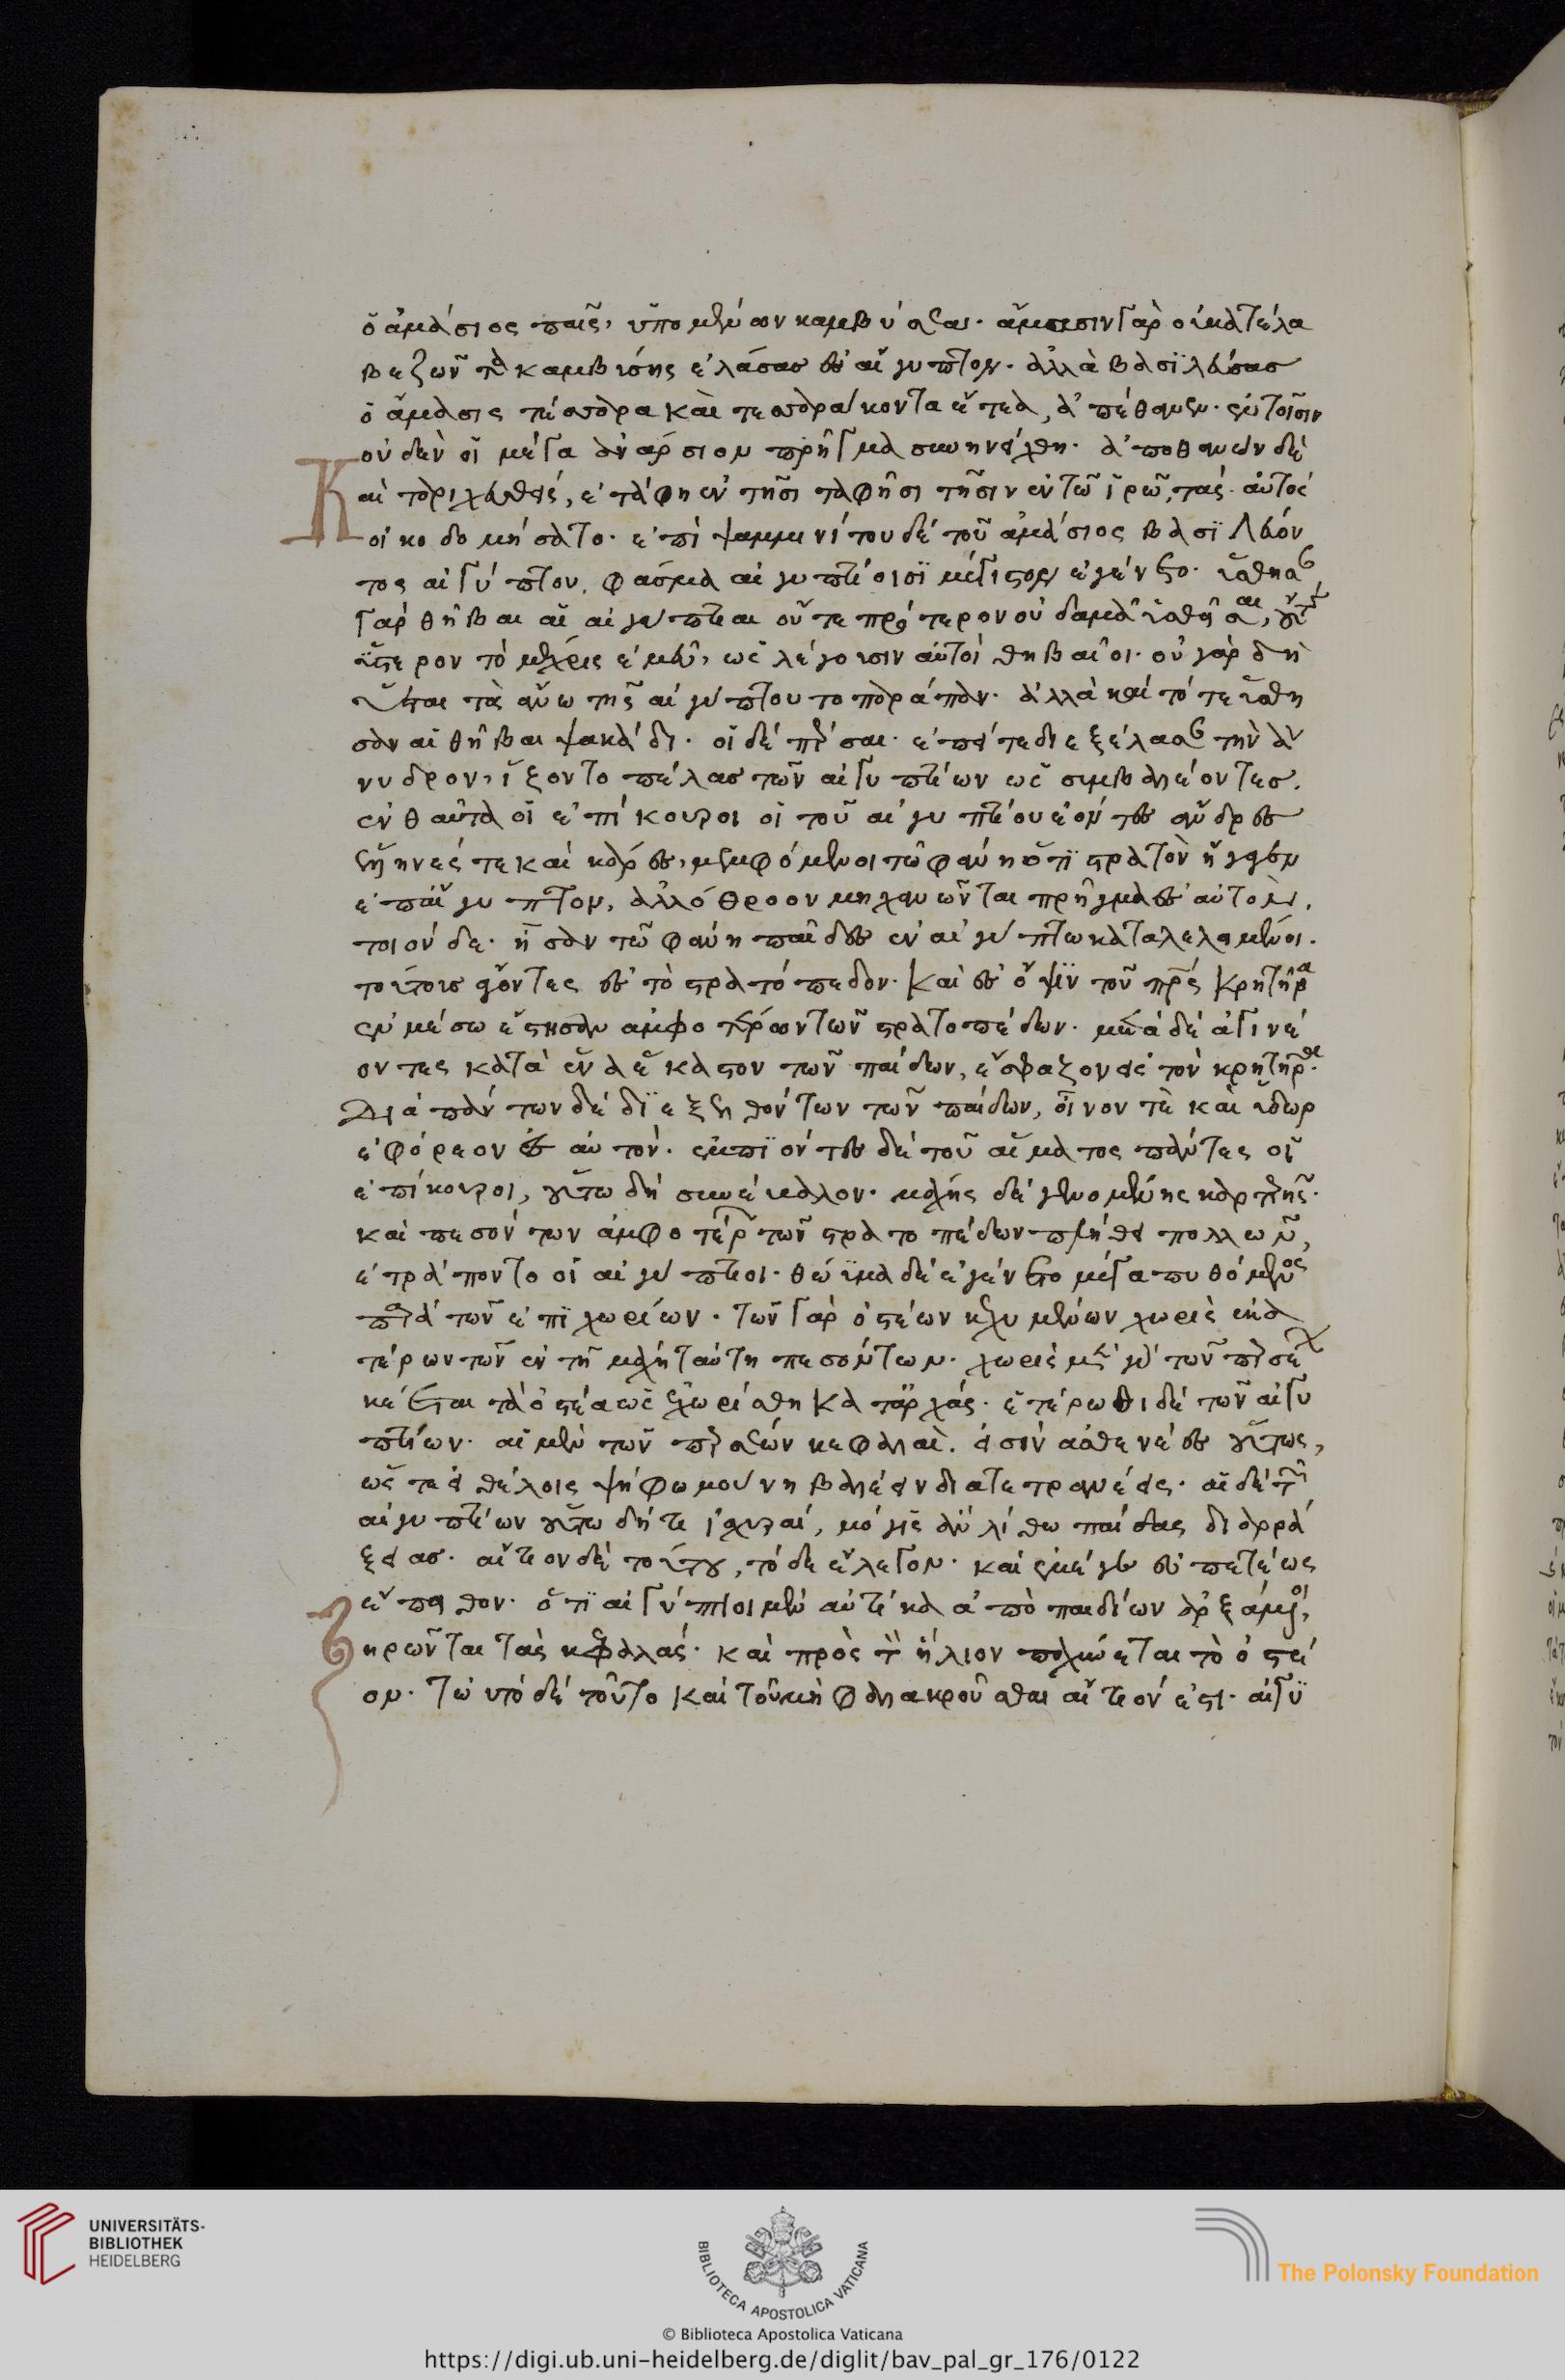 ὁ ἀμάσιος παῖς, ὑπομένων καμβύσεα. ἄμασιν γὰρ οὐ κατέλα
βε ζῶντα καμβύσης ἐλάσας ἐς αἴγυπτον. ἀλλὰ βασιλεύσας
ὁ ἄμασις τέσσερα καὶ τεσσεράκοντα ἔτεα, ἀπέθανεν. ἐν τοῖσιν
οὐδὲν οἱ μέγα ἀνάρσιον πρῆγμα συνηνείχθη. ἀποθανὼν δὲ
Καὶ ταριχευθείς, ἐτάφη ἐν τῆσι ταφῆσι τῆσιν ἐν τῶ ἱρῶ, τὰς αὐτὸς
οἰκοδομήσατο. ἐπὶ ψαμμινίτου δὲ τοῦ ἀμάσιος βασιλεύον
τος αἰγύπτου, φάσμα αἰγυπτίοισι μέγιστον ἐγένετο. ὕσθησαν
γὰρ θῆβαι αἱ αἰγύπτιαι οὔτε πρότερον οὐδαμὰ ὑσθῆσαι, οὔτε
ὕστερον τὸ μέχρις ἐμεῦ, ὡς λέγουσιν αὐτοὶ θηβαῖοι. οὐ γὰρ δὴ
ὕεται τὰ ἄνω τῆς αἰγύπτου τοπαράπαν. ἀλλὰ καὶ τότε ὕσθη
σαν αἱ θῆβαι ψακάδι. οἱ δὲ πέρσαι. ἐπείτε διεξελάσαντες τὴν ἄ
νυδρον, ἵζοντο πέλας τῶν αἰγυπτίων ὡς συμβαλέοντες.
ἐνθαῦτα οἱ ἐπίκουροι οἱ τοῦ αἰγυπτίου ἐόντες ἄνδρες
ἕλληνές τε καὶ κᾶρες, μεμφόμενοι τῶ φάνη ὅτι στρατὸν ἤγαγεν
ἐπ' αἴγυπτον, ἀλλόθροον μηχανῶνται πρῆγμα ἐς αὐτὸν,
τοιόνδε. ἦσαν τῶ φάνη παῖδες ἐν αἰγύπτω καταλελειμμένοι.
τούτους ἄγοντες ἐς τὸ στρατόπεδον. καὶ ἐς ὄψιν τοῦ πατρὸς κρητῆρα
ἐν μέσω ἔστησαν ἀμφοτέρων τῶν στρατοπέδων. μετὰ δὲ ἀγινέ
οντες κατὰ ἕνα ἕκαστον τῶν παίδων, ἔσφαζον ἐς τὸν κρητῆρα.
Διὰ πάντων δὲ διεξελθόντων τῶν παίδων, οἶνόν τε καὶ ὕδωρ
ἐφόρεον ἐς αὐτόν. ἐμπιόντες δὲ τοῦ αἵματος πάντες οἱ
ἐπίκουροι, οὕτω δὴ συνέβαλον. μάχης δὲ γενομένης καρτερῆς.
καὶ πεσόντων ἀμφοτέρων τῶν στρατοπέδων πλήθει πολλῶν,
ἐτράποντο οἱ αἰγύπτιοι. θώϋμα δὲ ἐγένετο μέγα πυθόμενος
παρὰ τῶν ἐπιχωρίων. τῶν γὰρ ὀστέων κεχυμένων χωρὶς ἑκα
τέρων τῶν ἐν τῆ μάχη ταύτη πεσόντων. χωρὶς μὲν γὰρ τῶν περσέων
κέεται τὰ ὀστέα ὡς ἐχωρίσθη κατ' ἀρχάς. ἑτέρωθι δὲ τῶν αἰγυ
πτίων. αἱ μὲν τῶν περσέων κεφαλαὶ. εἰσὶν ἀσθενέες οὕτως,
ὥστε εἰ θέλοις ψήφω μούνη βαλέειν διατετρανέεις. αἱ δὲ τῶν
αἰγυπτίων οὕτω δή τι ἰσχυραὶ, μόγις ἂν λίθω παίσας διαρρή
ξειας. αἴτιον δὲ τούτου, τόδε ἔλεγον. καὶ ἐμέ γε εὐπετέως
ἔπειθον. ὅτι αἰγύπτιοι μὲν αὐτίκα ἀπὸ παιδίων ἀρξάμενοι,
ξηρῶνται τὰς κεφαλάς. καὶ πρὸς τὸν ἥλιον παχύνεται τὸ ὀστέ
ον. τωὐτὸ δὲ τοῦτο καὶ τοῦ μὴ φαλακροῦσθαι αἴτιόν ἐστι. αἰγυ
UNIVERSITÄTS-
BIBLIOTHEK
HEIDELBERG
BIBLIOTECA APOSTOLICA VATICANA
The Polonsky Foundation
© Biblioteca Apostolica Vaticana
https://digi.ub.uni-heidelberg.de/diglit/bav_pal_gr_176/0122